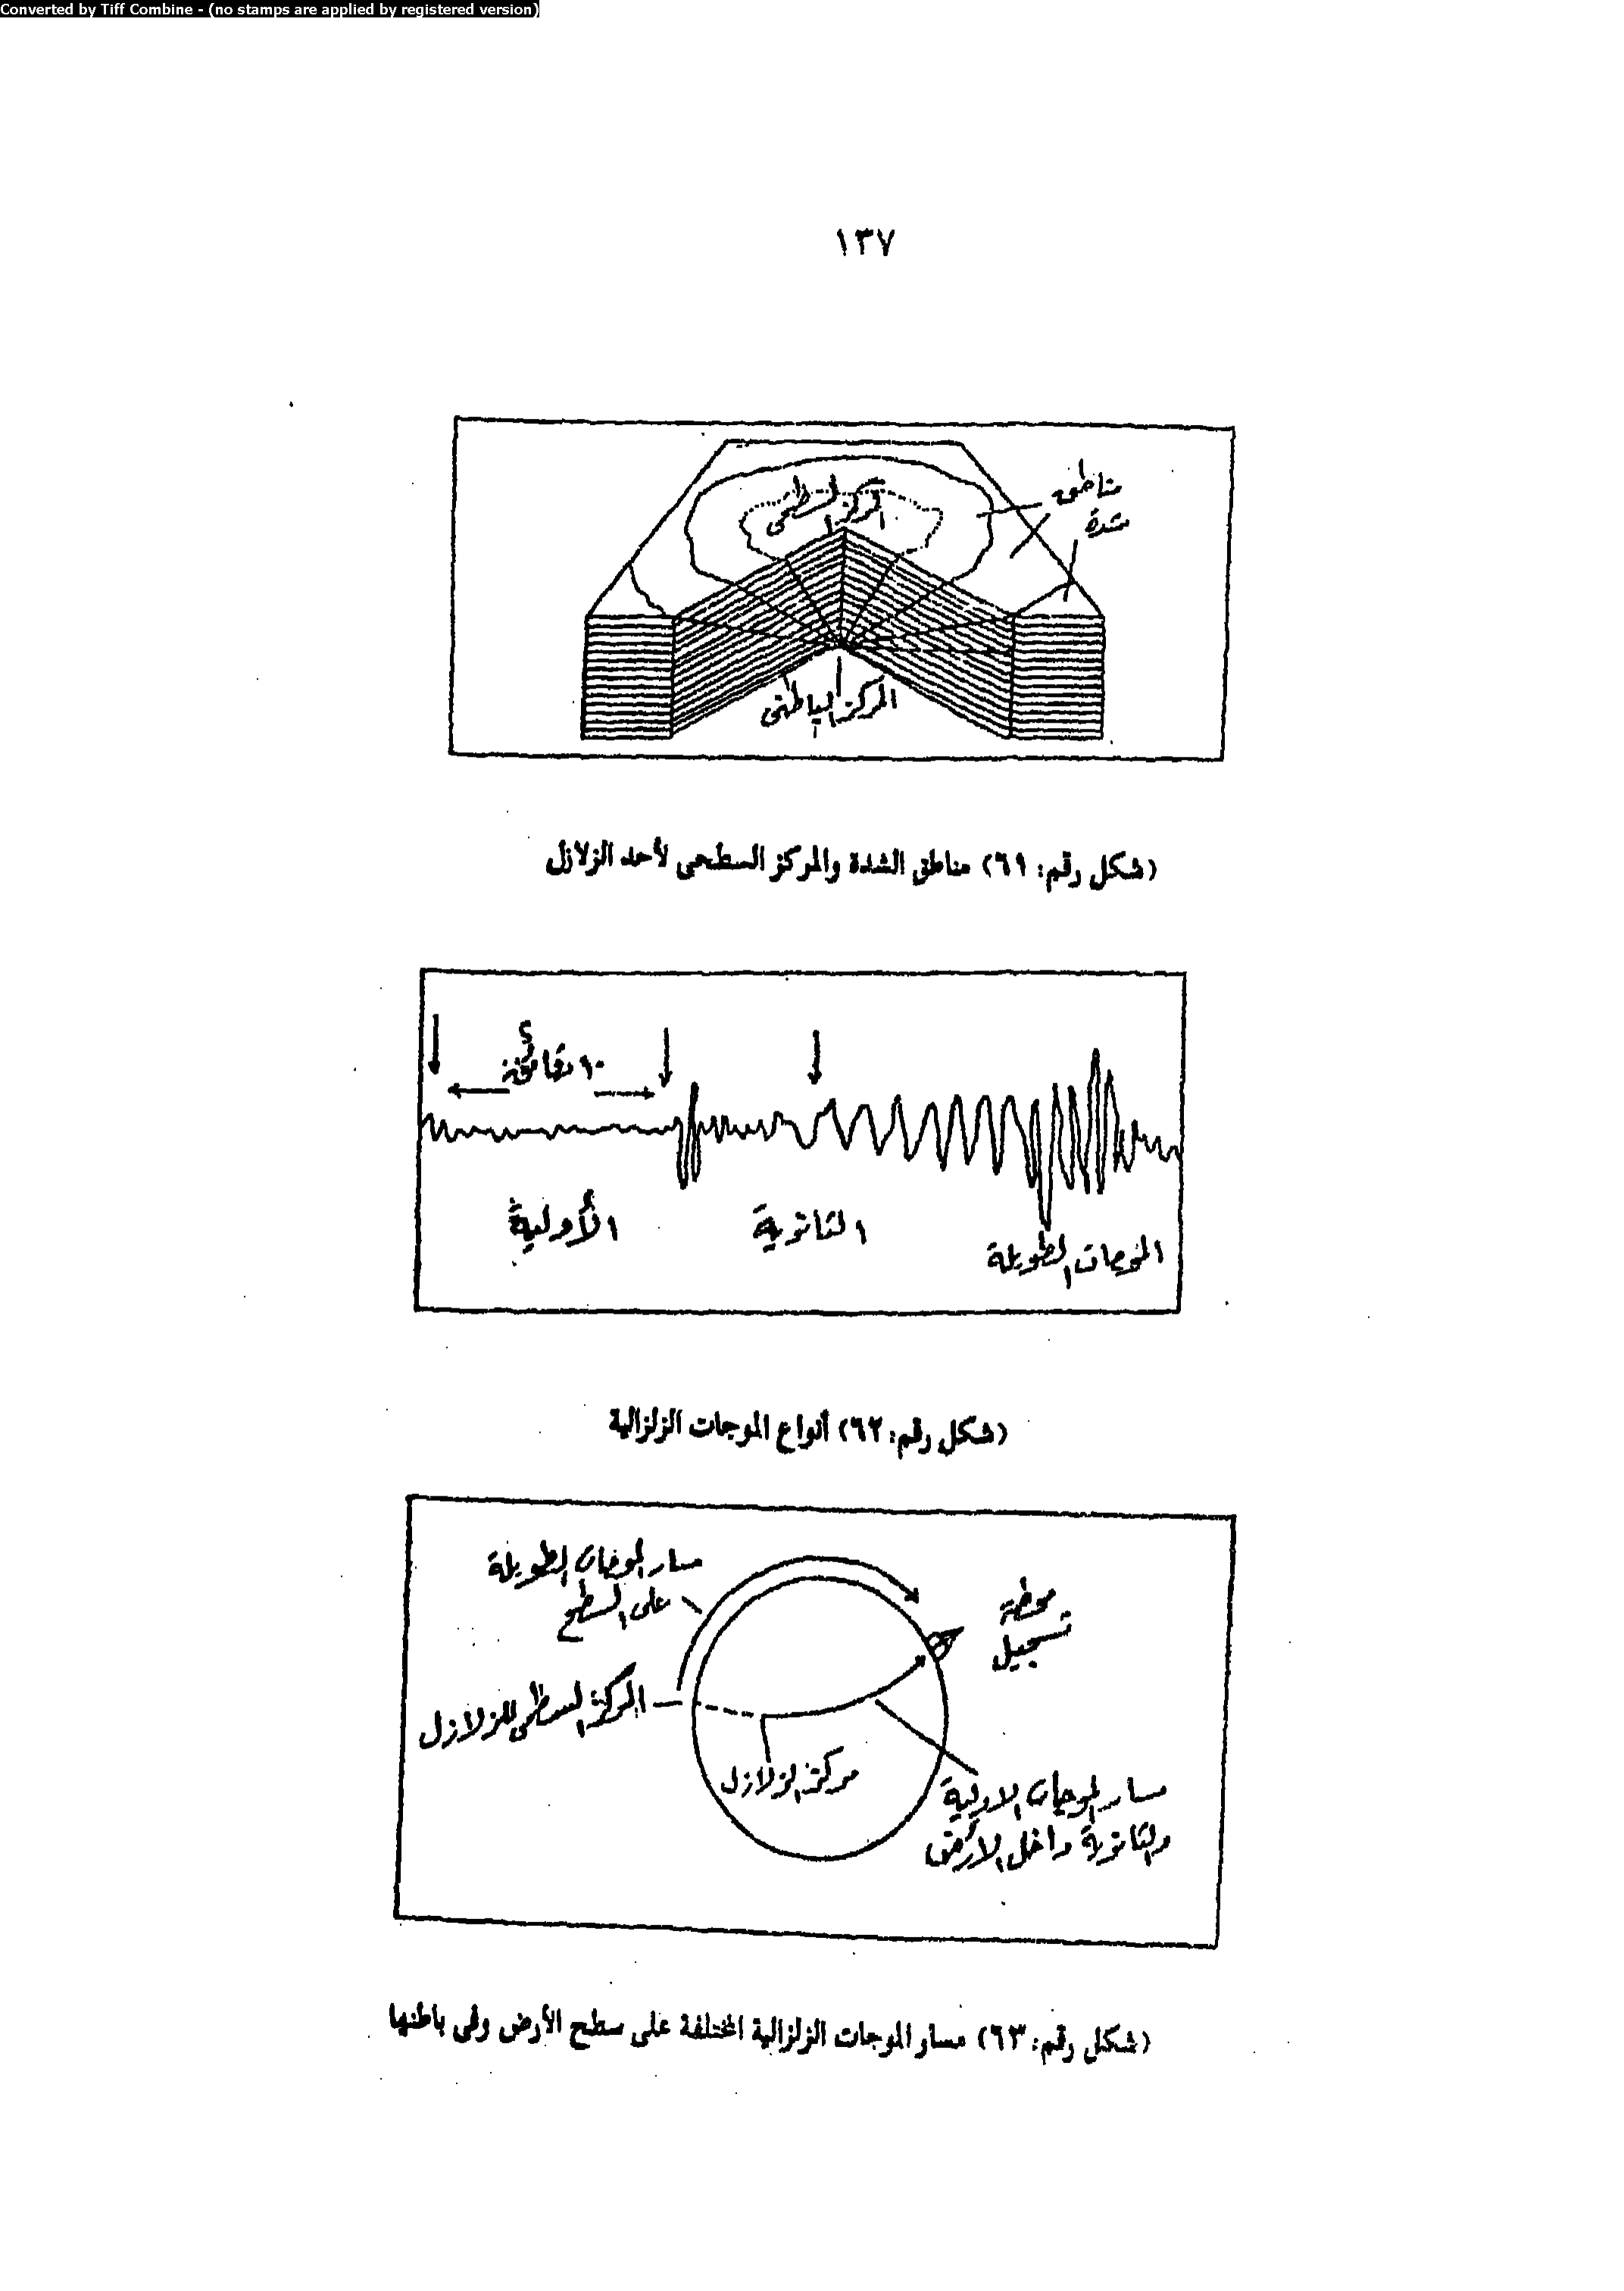 Converted by Tiff Combine - (no stamps are applied by registered version)
١٣٧
مناطق
شدة
المركز السطحى
المركز الباطنى
(شكل رقم: ٦١) مناطق الشدة والمركز السطحى لأحد الزلازل
١٠ دقائق
الأولية
الثانوية
الموجات الطويلة
(شكل رقم: ٦٢) أنواع الموجات الزلزالية
مسار الموجات الطويلة
على السطح
محطة
تسجيل
المركز السطحى للزلازل
مركز الزلازل
مسار الموجات الاولية
والثانوية داخل الأرض
(شكل رقم: ٦٣) مسار الموجات الزلزالية المختلفة على سطح الأرض وفى باطنها